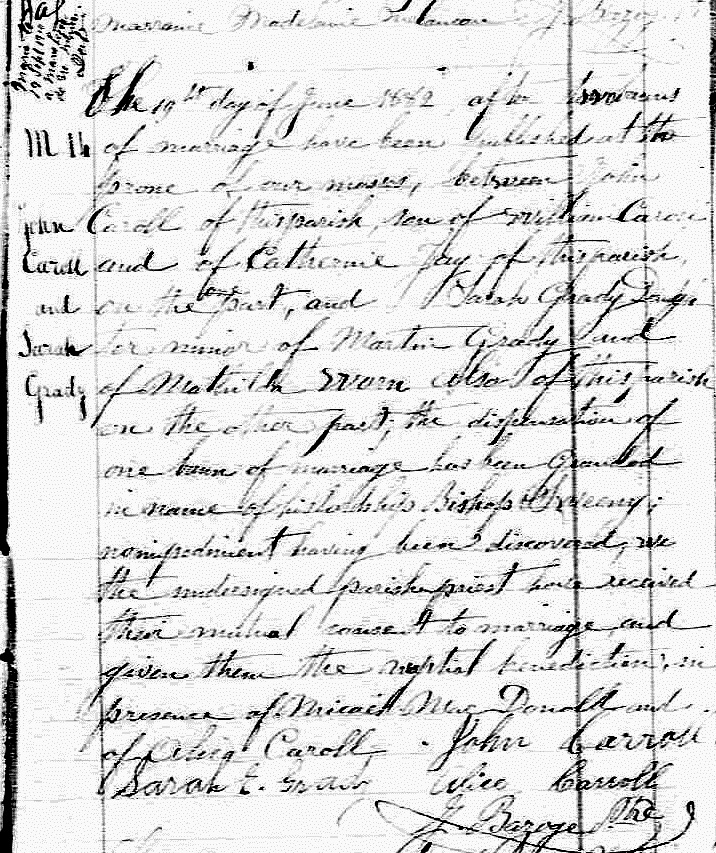 marraine Madelaine Melancon J. Bazoge
The 19th day of June 1882 after two banns
M 16
of marriage have been published at the
prone of our masses, between John
John Caroll and Sarah Grady
Caroll of this parish, son of William Caroll
and of Catherine Fay of this parish,
on the one part, and Sarah Grady Daugh
ter minor of Martin Grady and
of Mathilda also of this parish
on the other part; the dispensation of
one bann of marriage has been Granded
in name of his Lordship Bishop Sweeny;
no impediment having been discovered, we
the undersigned parish priest have received
their mutual consent to marriage, and
given them the nuptial benediction, in
presence of Micael Mac Donald and
of Alice Caroll. John Carroll
Sarah E. Grady Alice Carroll
J. Bazoge Ptre